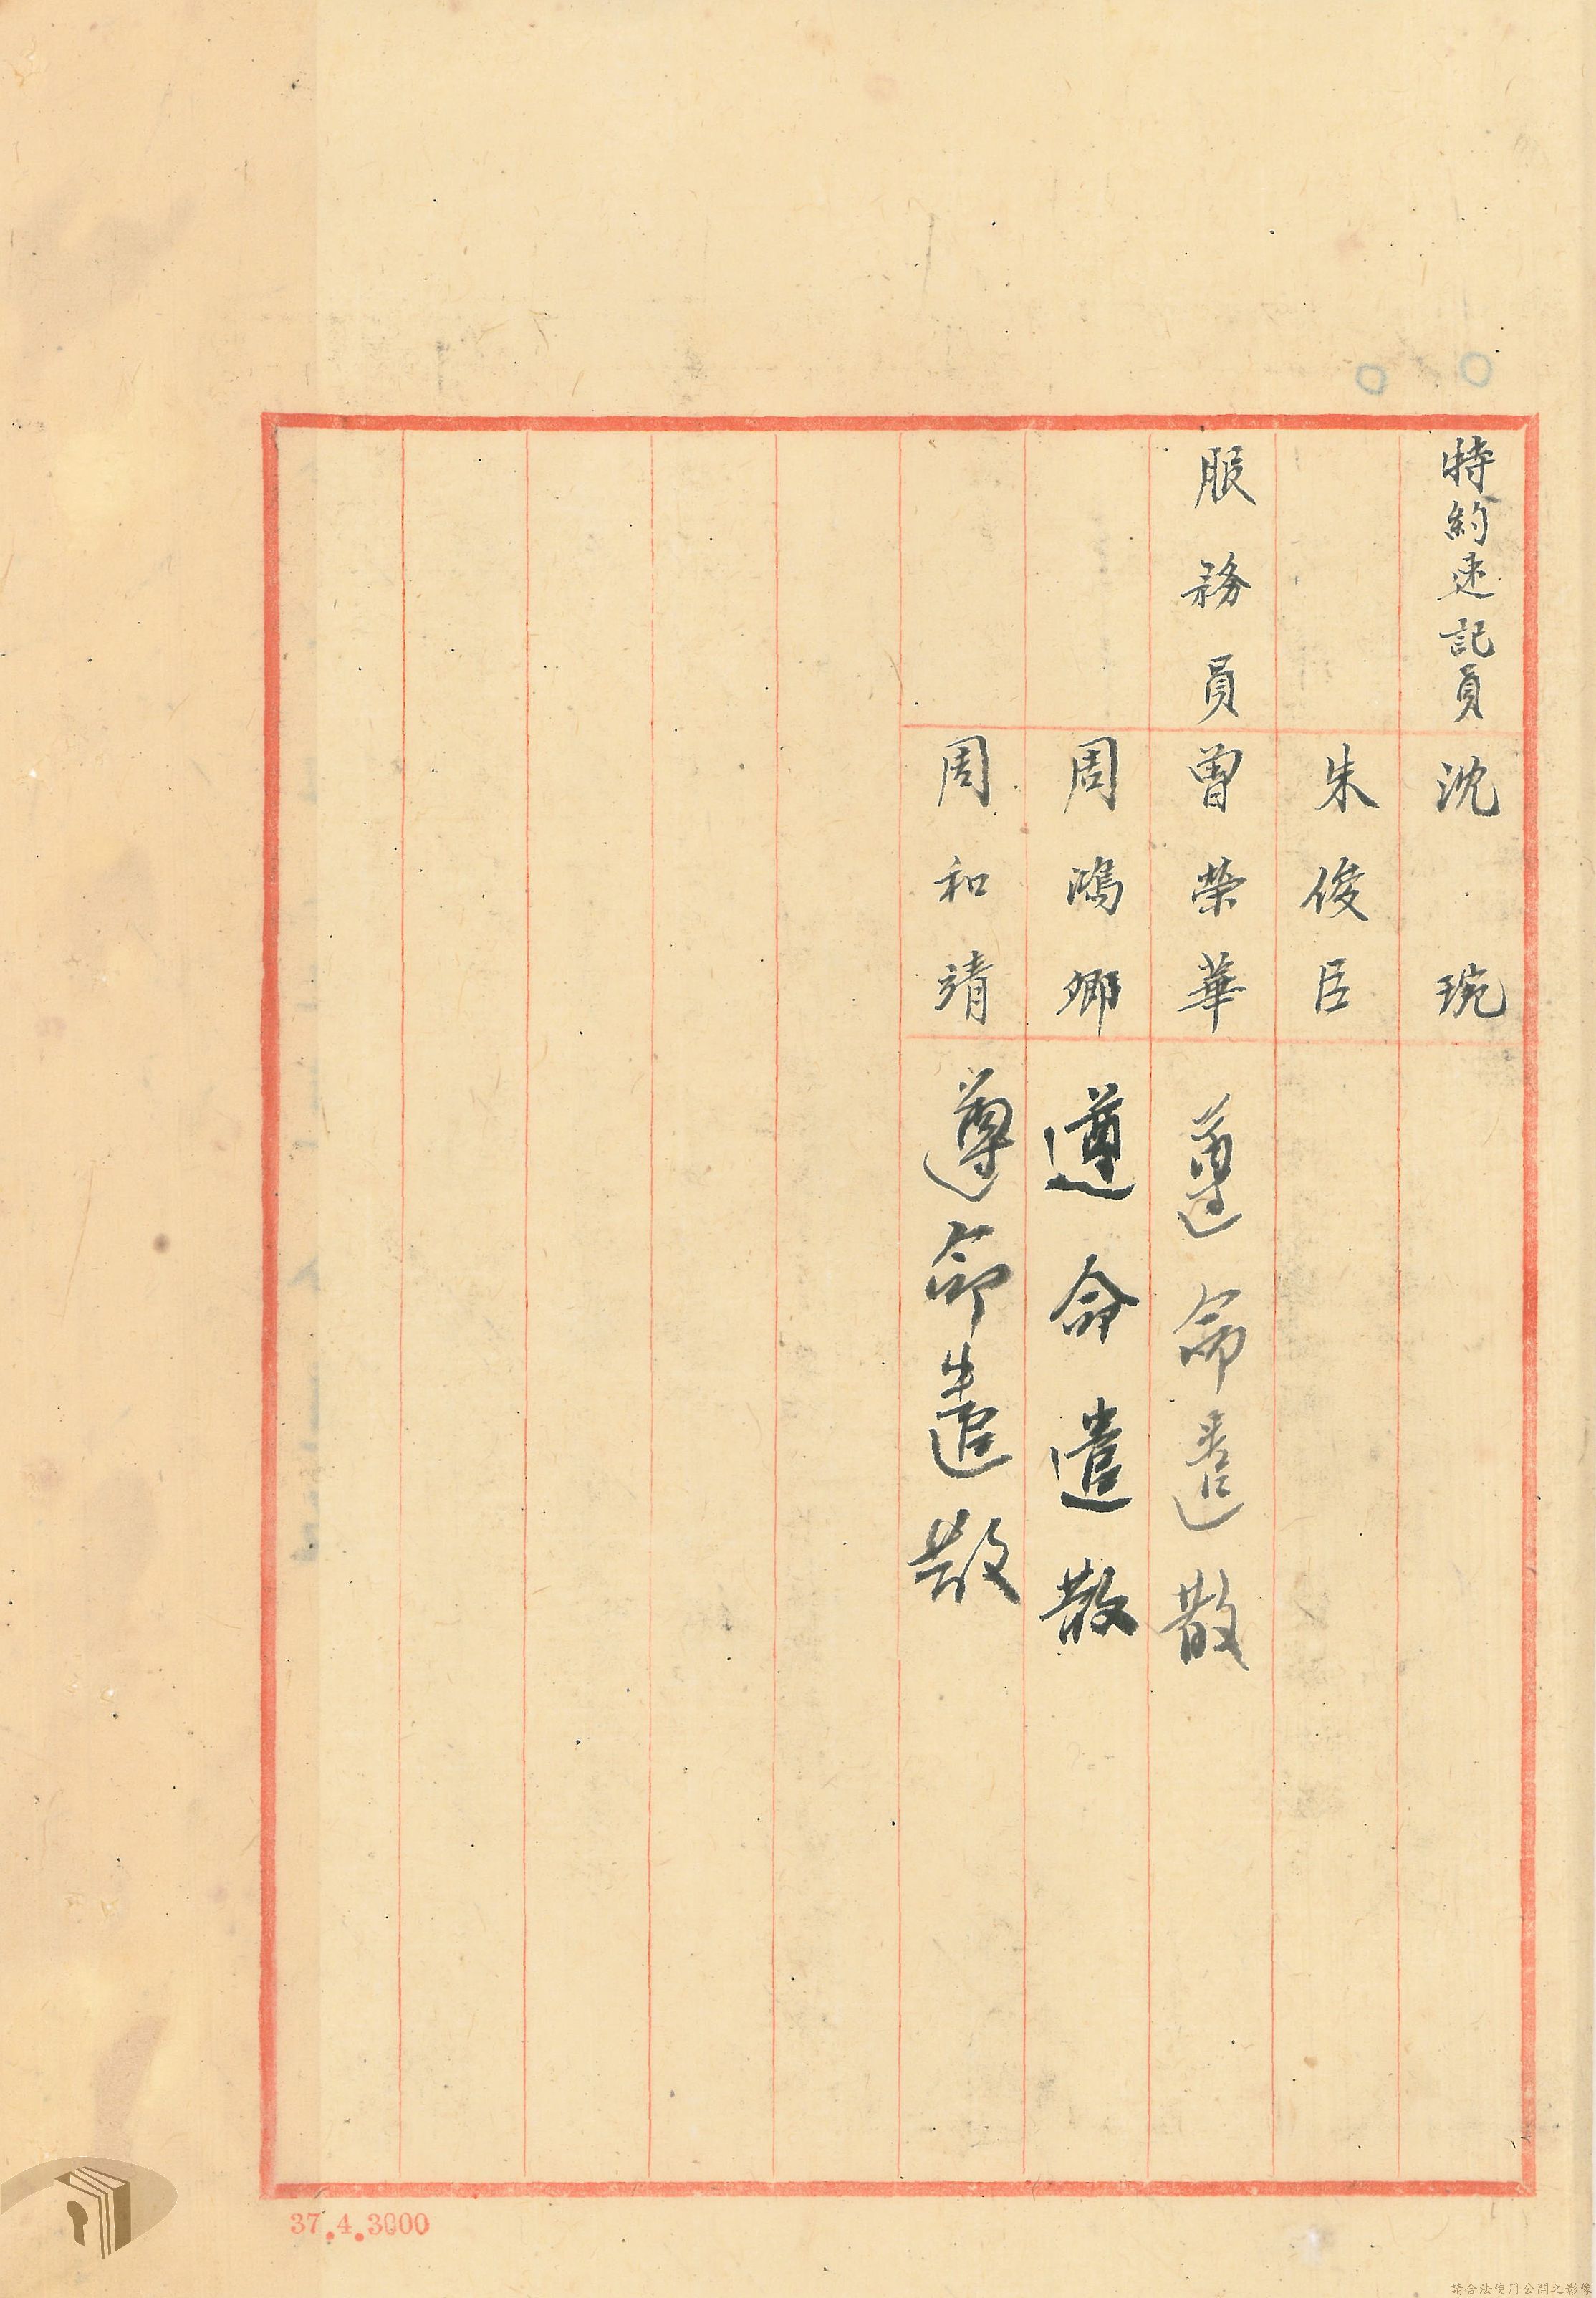 特約速記員 沈琬
朱俊臣
服務員 曾榮華 遵命遣散
周鴻卿 遵命遣散
周和靖 遵命遣散
37.4.3000
請合法使用公開之影像